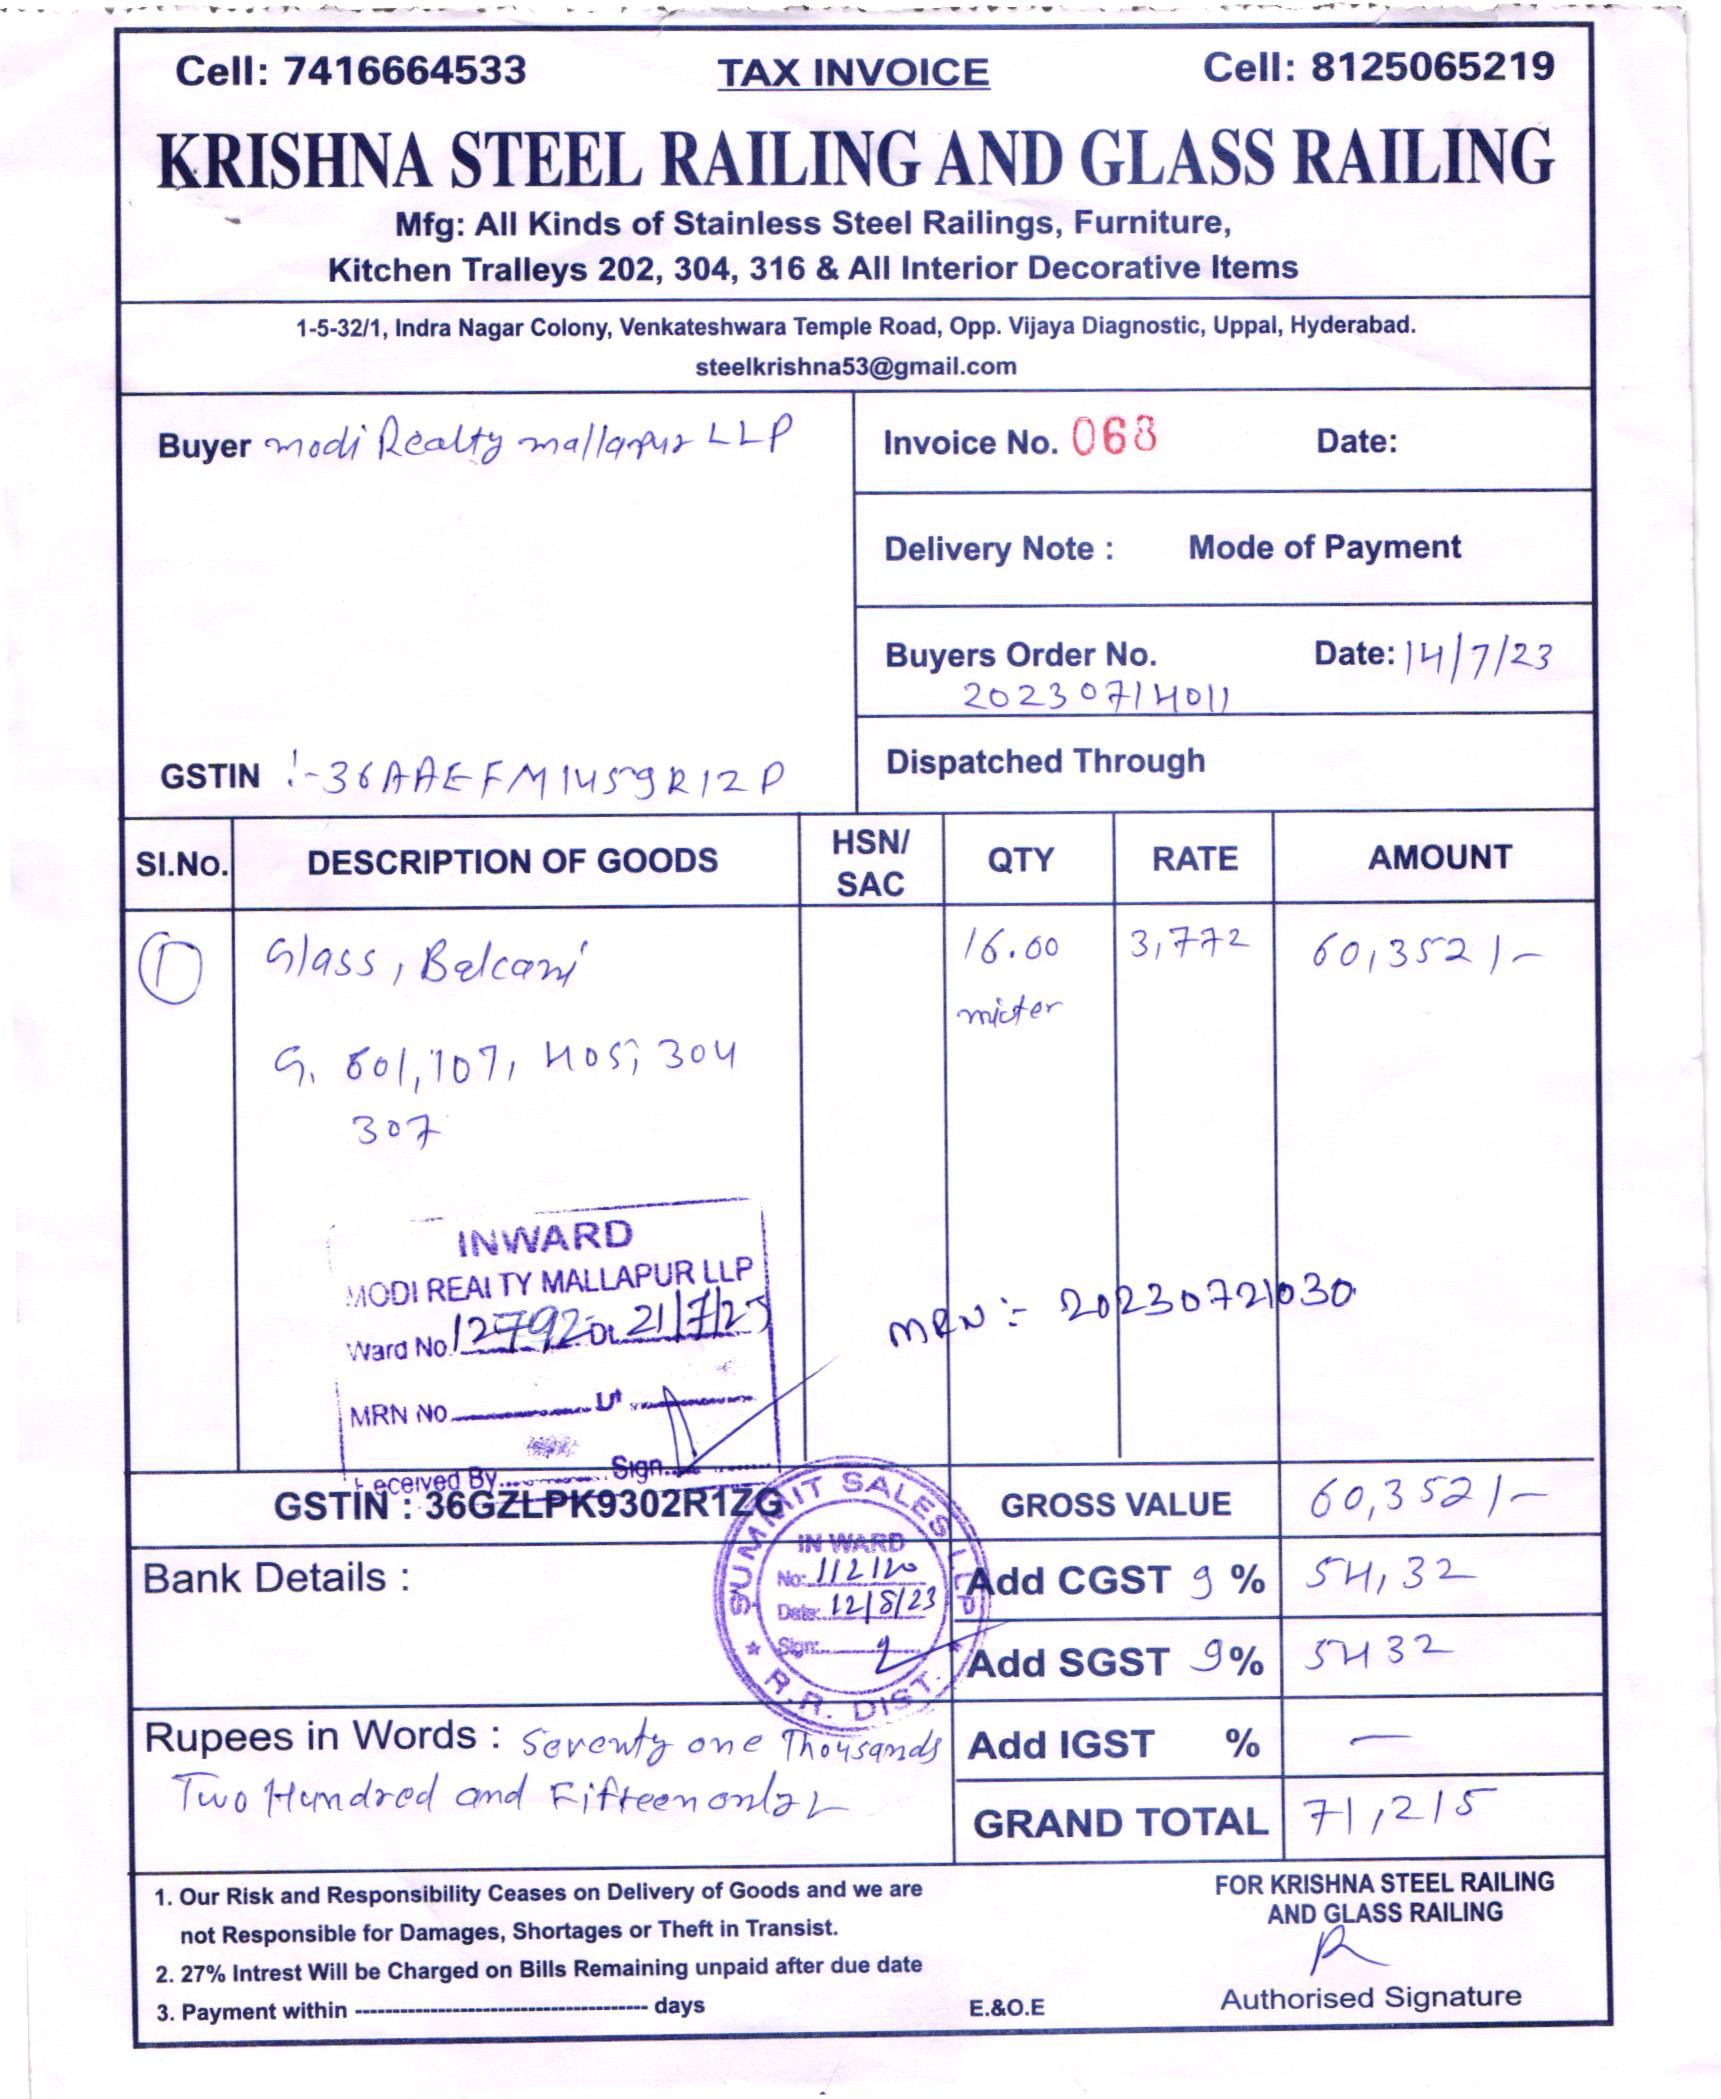 Cell: 7416664533 TAX INVOICE Cell: 8125065219
KRISHNA STEEL RAILING AND GLASS RAILING
Mfg: All Kinds of Stainless Steel Railings, Furniture,
Kitchen Tralleys 202, 304, 316 & All Interior Decorative Items
1-5-32/1, Indra Nagar Colony, Venkateshwara Temple Road, Opp. Vijaya Diagnostic, Uppal, Hyderabad.
steelkrishna53@gmail.com
Buyer modi Realty mallapur LLP
Invoice No. 068 Date:
Delivery Note : Mode of Payment
Buyers Order No. Date: 14/7/23
20230714011
GSTIN :- 36AAEFM1459R1ZP
Dispatched Through
SI.No. DESCRIPTION OF GOODS HSN/SAC QTY RATE AMOUNT
1 Glass, Balcani 16.00 3,772 60,352/-
micter
G. 601, 107, 405, 304
307
INWARD
MODI REALTY MALLAPUR LLP
Ward No. 12792 Dt. 21/7/23
MRN No
Received By Sign
MRN :- 20230721030
GSTIN : 36GZLPK9302R1ZG
GROSS VALUE 60,352/-
SUMMIT SALES LLP
IN WARD
No: 112120
Date: 12/8/23
Sign:
R.R. DIST.
Bank Details :
Add CGST 9 % 54,32
Add SGST 9 % 5432
Add IGST % —
Rupees in Words : Seventy one Thousands
Two Hundred and Fifteen only
GRAND TOTAL 71,215
1. Our Risk and Responsibility Ceases on Delivery of Goods and we are
not Responsible for Damages, Shortages or Theft in Transist.
2. 27% Intrest Will be Charged on Bills Remaining unpaid after due date
3. Payment within ---------------------------------------- days
E.&O.E
FOR KRISHNA STEEL RAILING
AND GLASS RAILING
Authorised Signature